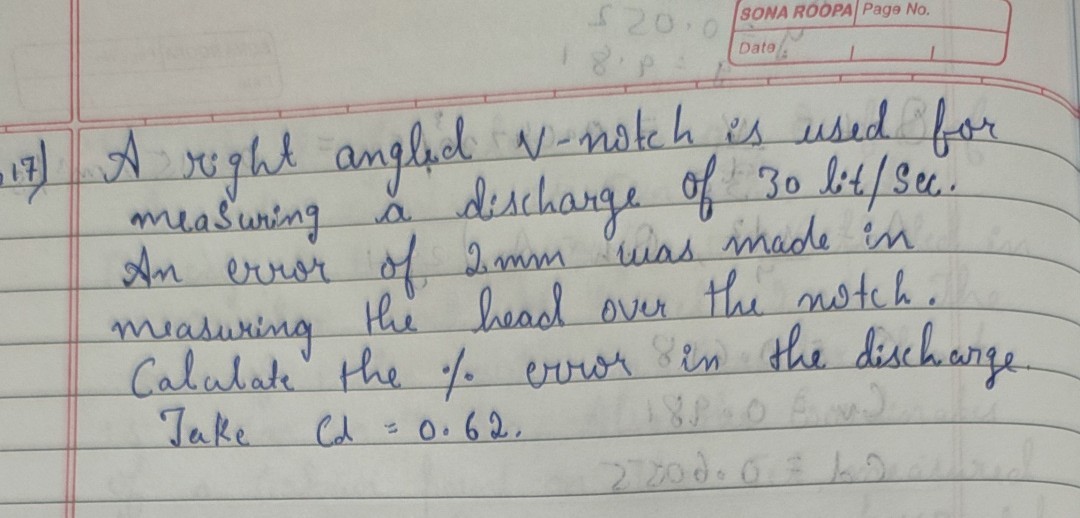 SONA ROOPA Page No.
Date
17) A right angled V-notch is used for
measuring a discharge of 30 lit/sec.
An error of 2mm was made in
measuring the head over the notch.
Calculate the % error in the discharge.
Take Cd = 0.62.